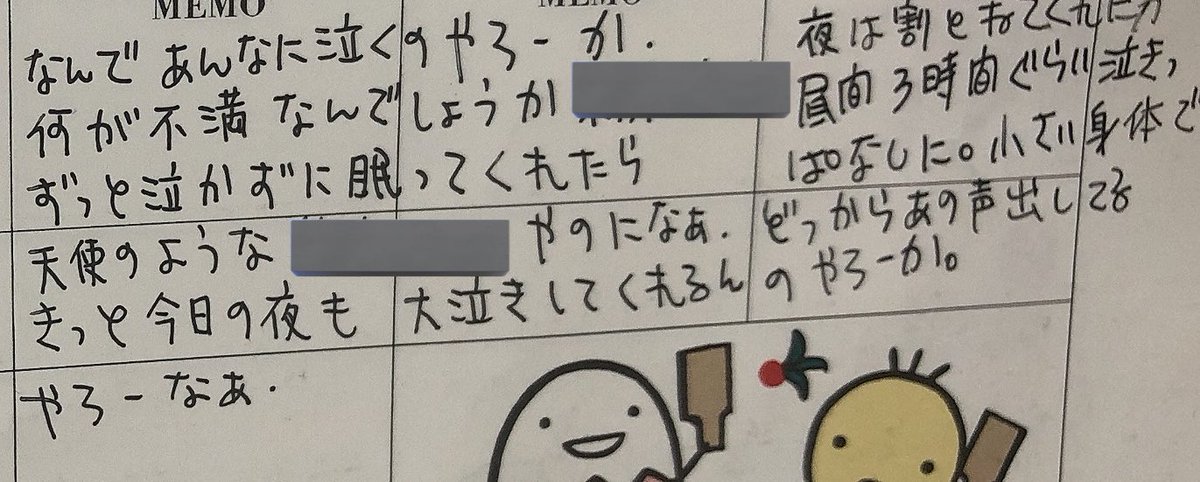 MEMO
なんであんなに泣くのやろーか.
何が不満なんでしょうか
ずっと泣かずに眠ってくれたら
天使のような やのになぁ.
きっと今日の夜も大泣きしてくれるん
やろーなぁ.
夜は割とねてくれ
昼間3時間ぐらい泣きっ
ぱなしに。小さい身体で
どっからあの声出してる
のやろーか。